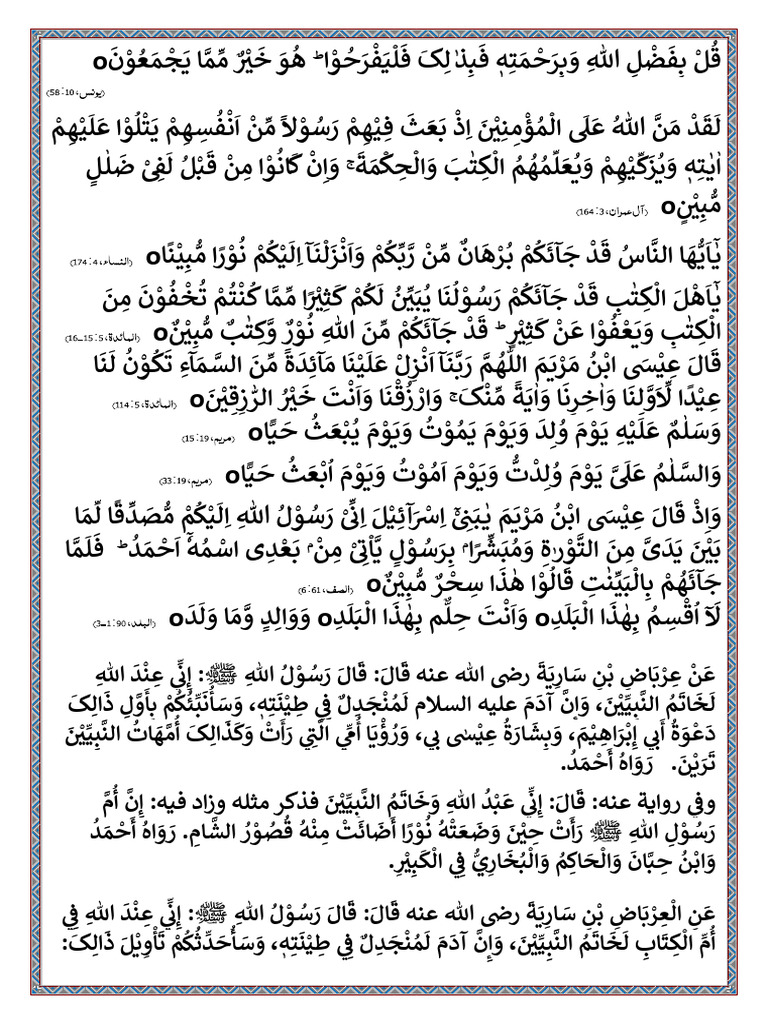 قُلْ بِفَضْلِ اللهِ وَبِرَحْمَتِهٖ فَبِذٰلِکَ فَلْيَفْرَحُوْا ؕ هُوَ خَيْرٌ مِّمَّا يَجْمَعُوْنَo
(يونس، 10 : 58)
لَقَدْ مَنَّ اللهُ عَلَی الْمُؤْمِنِيْنَ اِذْ بَعَثَ فِيْهِمْ رَسُوْلاً مِّنْ اَنْفُسِهِمْ يَتْلُوْا عَلَيْهِمْ
اٰيٰتِهٖ وَيُزَکِّيْهِمْ وَيُعَلِّمُهُمُ الْکِتٰبَ وَالْحِکْمَةَ ۚ وَاِنْ کَانُوْا مِنْ قَبْلُ لَفِيْ ضَلٰلٍ
مُّبِيْنٍo (آل عمران، 3 : 164)
يٰٓاَيُّهَا النَّاسُ قَدْ جَآئَکُمْ بُرْهَانٌ مِّنْ رَّبِّکُمْ وَاَنْزَلْنَآ اِلَيْکُمْ نُوْرًا مُّبِيْنًاo (النساء، 4 : 174)
يٰٓاَهْلَ الْکِتٰبِ قَدْ جَآئَکُمْ رَسُوْلُنَا يُبَيِّنُ لَکُمْ کَثِيْرًا مِّمَّا کُنْتُمْ تُخْفُوْنَ مِنَ
الْکِتٰبِ وَيَعْفُوْا عَنْ کَثِيْرٍ ؕ قَدْ جَآئَکُمْ مِّنَ اللهِ نُوْرٌ وَّکِتٰبٌ مُّبِيْنٌo (المائدة، 5 : 15ـ16)
قَالَ عِيْسَی ابْنُ مَرْيَمَ اللّٰهُمَّ رَبَّنَآ اَنْزِلْ عَلَيْنَا مَآئِدَةً مِّنَ السَّمَآءِ تَکُوْنُ لَنَا
عِيْدًا لِّاَوَّلِنَا وَاٰخِرِنَا وَاٰيَةً مِّنْکَ ۚ وَارْزُقْنَا وَاَنْتَ خَيْرُ الرّٰزِقِيْنَo (المائدة، 5 : 114)
وَسَلٰمٌ عَلَيْهِ يَوْمَ وُلِدَ وَيَوْمَ يَمُوْتُ وَيَوْمَ يُبْعَثُ حَيًّاo (مريم، 19 : 15)
وَالسَّلٰمُ عَلَيَّ يَوْمَ وُلِدْتُّ وَيَوْمَ اَمُوْتُ وَيَوْمَ اُبْعَثُ حَيًّاo (مريم، 19 : 33)
وَاِذْ قَالَ عِيْسَی ابْنُ مَرْيَمَ يٰبَنِيْٓ اِسْرَآئِيْلَ اِنِّيْ رَسُوْلُ اللهِ اِلَيْکُمْ مُّصَدِّقًا لِّمَا
بَيْنَ يَدَيَّ مِنَ التَّوْرٰةِ وَمُبَشِّرًا ۢ بِرَسُوْلٍ يَّاْتِيْ مِنْ ۢ بَعْدِی اسْمُهٗٓ اَحْمَدُ ؕ فَلَمَّا
جَآئَهُمْ بِالْبَيِّنٰتِ قَالُوْا هٰذَا سِحْرٌ مُّبِيْنٌo (الصف، 61 : 6)
لَآ اُقْسِمُ بِهٰذَا الْبَلَدِo وَاَنْتَ حِلٌّم بِهٰذَا الْبَلَدِo وَوَالِدٍ وَّمَا وَلَدَo (البلد، 90 : 1ـ3)
عَنْ عِرْبَاضِ بْنِ سَارِيَةَ رضی الله عنه قَالَ: قَالَ رَسُوْلُ اللهِ ﷺ: إِنِّي عِنْدَ اللهِ
لَخَاتَمُ النَّبِيِّيْنَ، وَإِنَّ آدَمَ عليه السلام لَمُنْجَدِلٌ فِي طِيْنَتِهٖ، وَسَأُنَبِّئُکُمْ بِأَوَّلِ ذَالِکَ
دَعْوَةُ أَبِي إِبْرَاهِيْمَ، وَبِشَارَةُ عِيْسٰی بِي، وَرُؤْيَا أُمِّي الَّتِي رَأَتْ وَکَذَالِکَ أُمَّهَاتُ النَّبِيِّيْنَ
تَرَيْنَ. رَوَاهُ أَحْمَدُ.
وفي رواية عنه: قَالَ: إِنِّي عَبْدُ اللهِ وَخَاتَمُ النَّبِيِّيْنَ فذکر مثله وزاد فيه: إِنَّ أُمَّ
رَسُوْلِ اللهِ ﷺ رَأَتْ حِيْنَ وَضَعَتْهُ نُوْرًا أَضَائَتْ مِنْهُ قُصُوْرُ الشَّامِ. رَوَاهُ أَحْمَدُ
وَابْنُ حِبَّانَ وَالْحَاکِمُ وَالْبُخَارِيُّ فِي الْکَبِيْرِ.
عَنِ الْعِرْبَاضِ بْنِ سَارِيَةَ رضی الله عنه قَالَ: قَالَ رَسُوْلُ اللهِ ﷺ: إِنِّي عِنْدَ اللهِ فِي
أُمِّ الْکِتَابِ لَخَاتَمُ النَّبِيِّيْنَ، وَإِنَّ آدَمَ لَمُنْجَدِلٌ فِي طِيْنَتِهٖ، وَسَأُحَدِّثُکُمْ تَأْوِيْلَ ذَالِکَ: